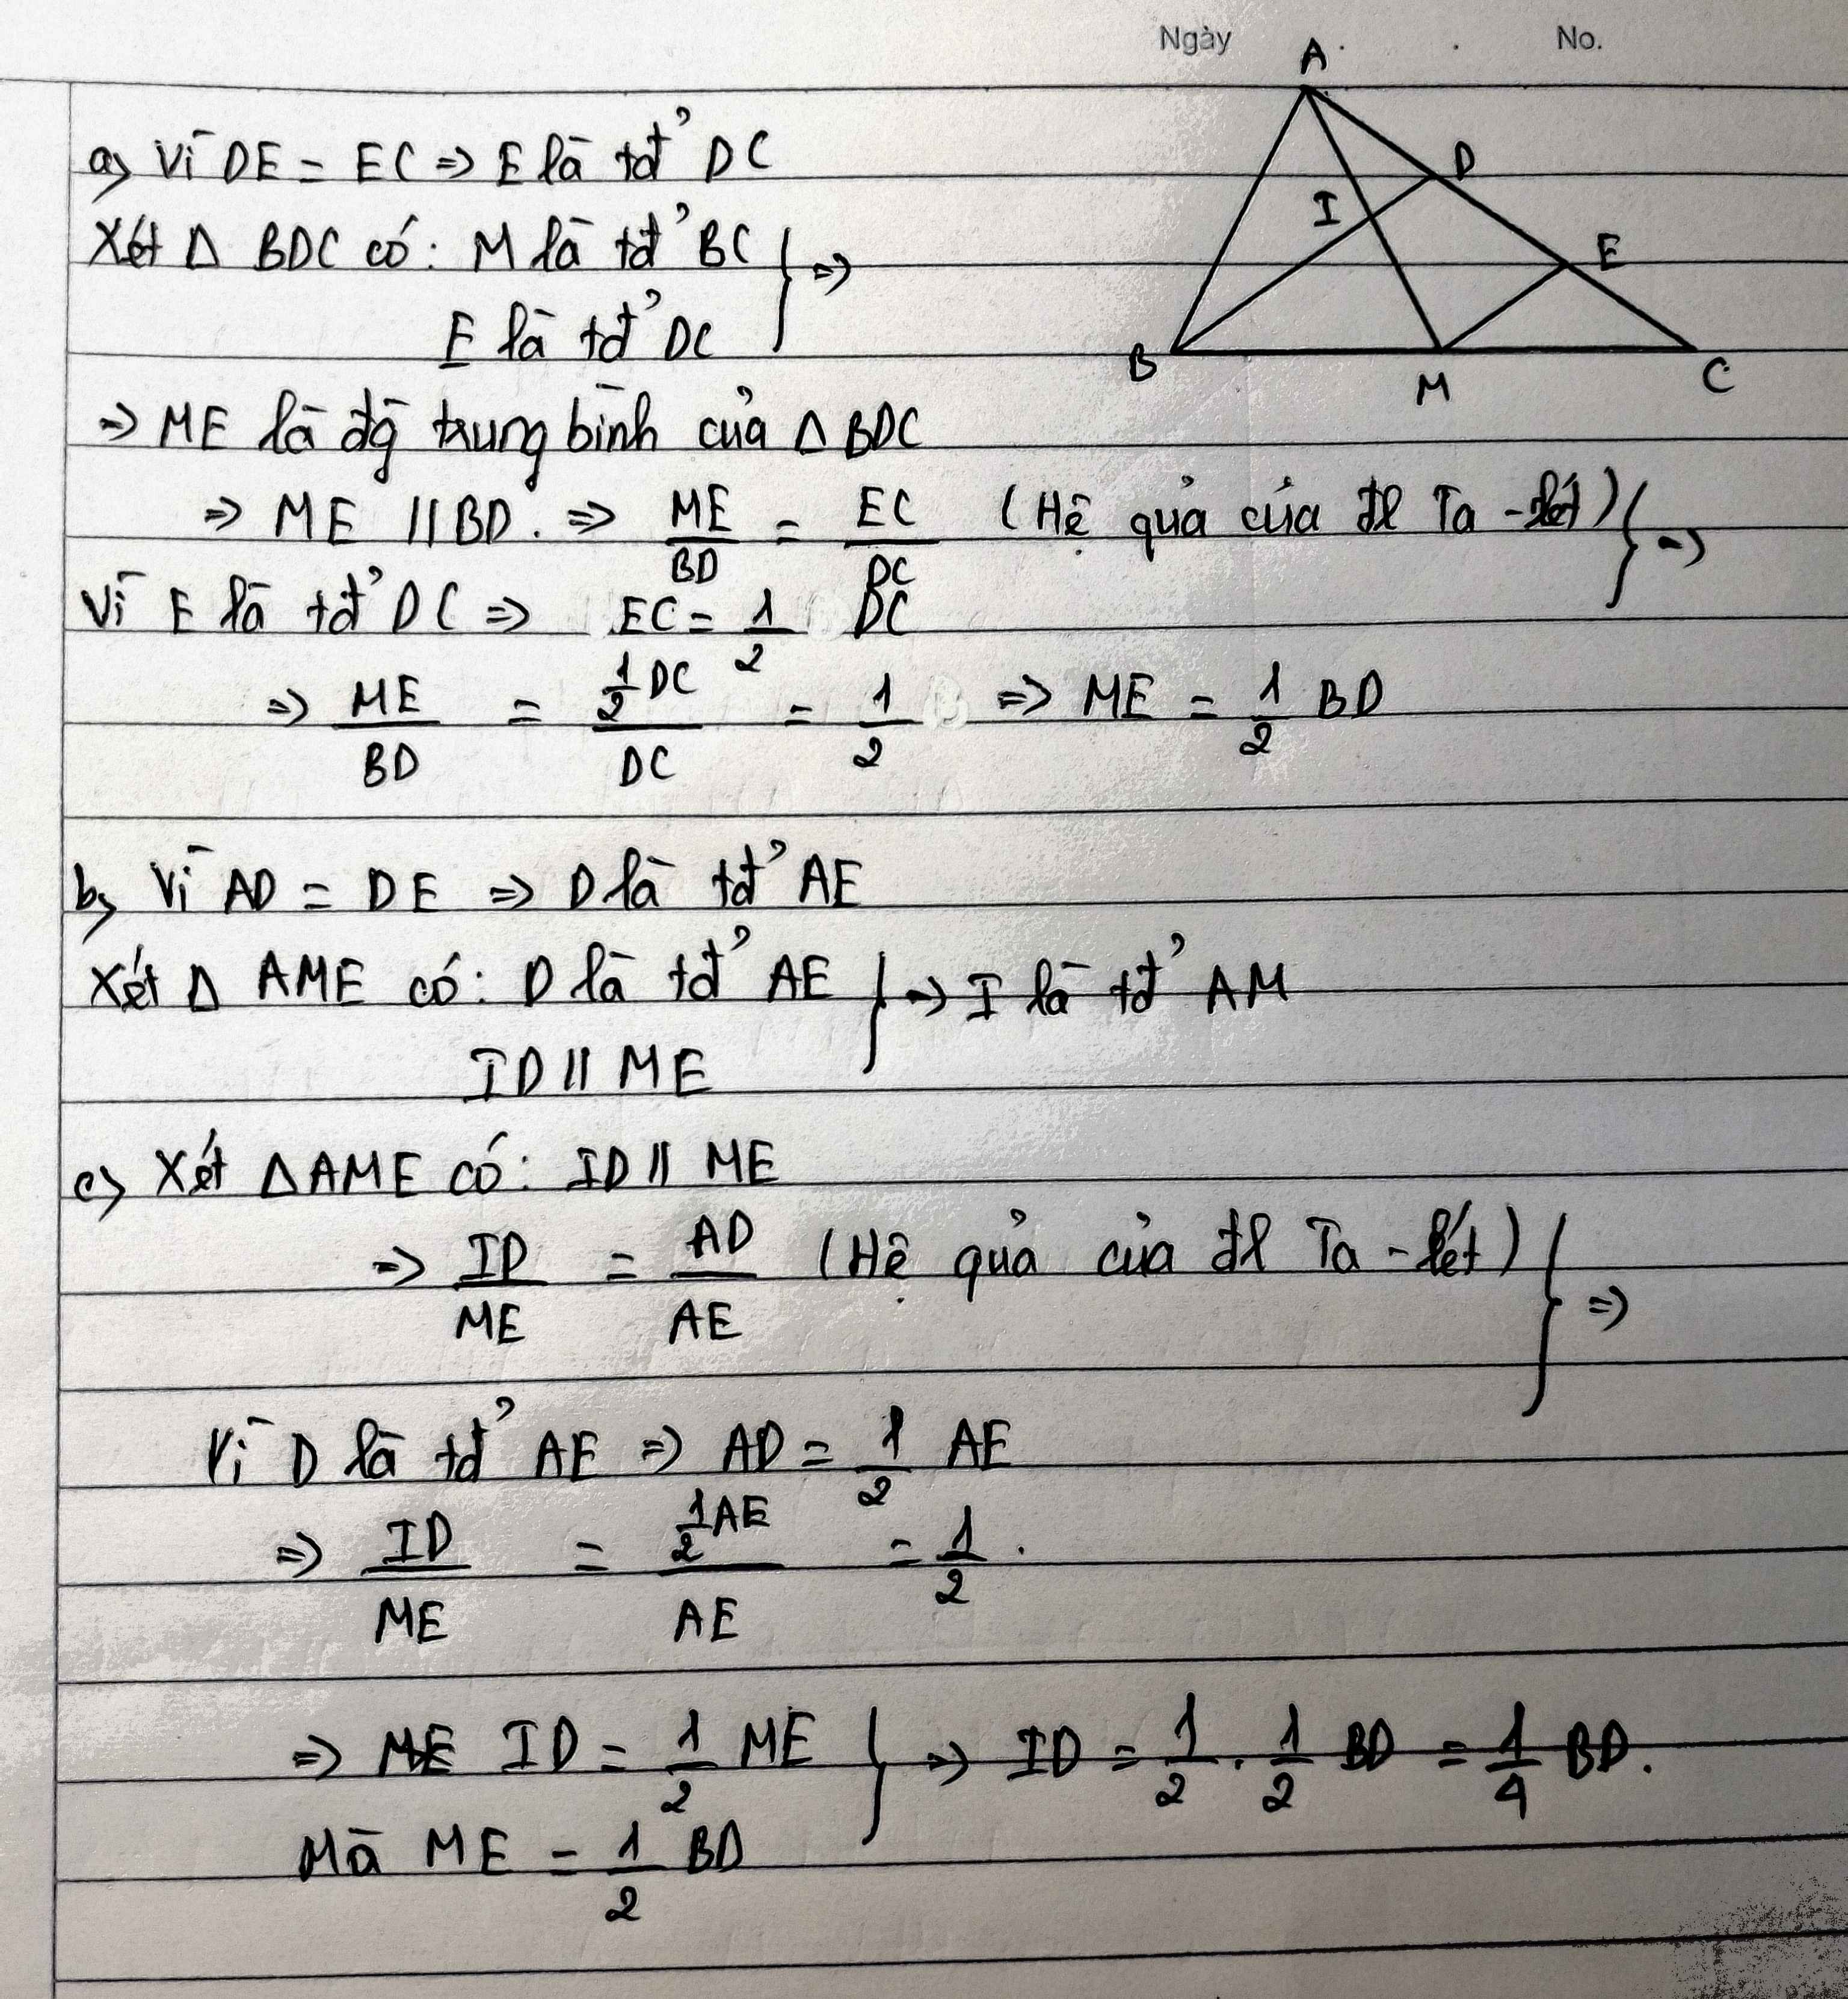 Ngày . . No.
A
D
I
E
B
M
C
a) Vì DE = EC => E là tđ' DC
Xét Δ BDC có: M là tđ' BC } =>
E là tđ' DC
=> ME là đg trung bình của Δ BDC
=> ME // BD. => ME/BD = EC/DC (Hệ quả của đl Ta-lét) } =>
Vì E là tđ' DC => EC = 1/2 DC
=> ME/BD = 1/2 DC/DC = 1/2 => ME = 1/2 BD
b) Vì AD = DE => D là tđ' AE
Xét Δ AME có: D là tđ' AE } => I là tđ' AM
ID // ME
c) Xét Δ AME có: ID // ME
=> ID/ME = AD/AE (Hệ quả của đl Ta-lét) } =>
Vì D là tđ' AE => AD = 1/2 AE
=> ID/ME = 1/2 AE/AE = 1/2.
=> ME ID = 1/2 ME } => ID = 1/2 . 1/2 BD = 1/4 BD.
Mà ME = 1/2 BD